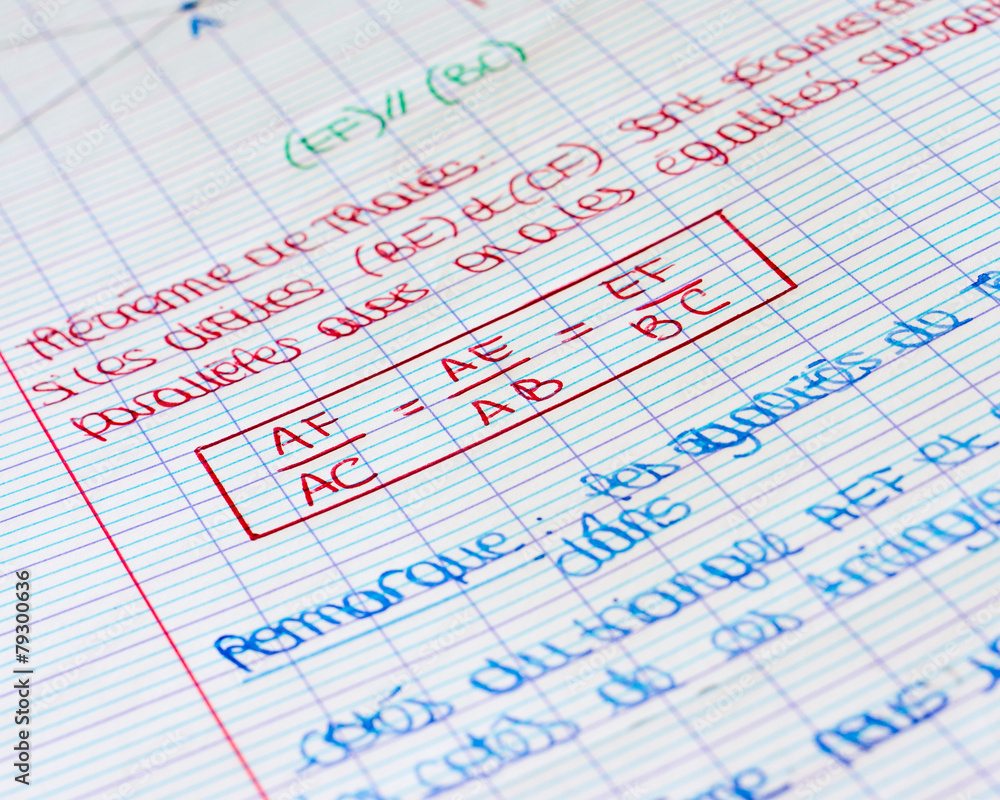 A
(EF) // (BC)
théorème de Thalès:
si les droites (BE) et (CF) sont sécantes en
parallèles alors on a les égalités suivant
AF/AC = AE/AB = EF/BC
Remarque: Les égalités de
dans
côtés du triangle AEF et
côtés de ces triangle
Adobe Stock | #79300636